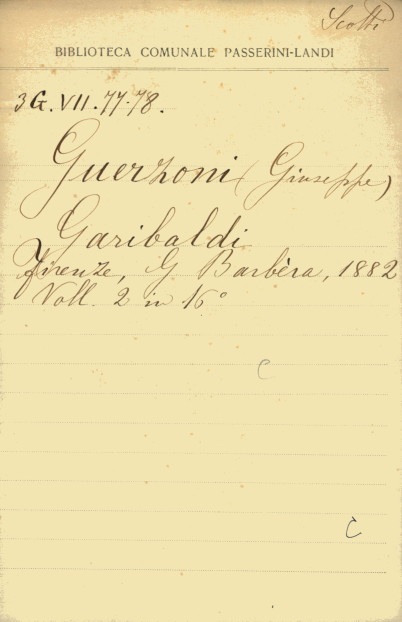 Scotti
BIBLIOTECA COMUNALE PASSERINI-LANDI
3G.VII.77-78.
Guerzoni (Giuseppe)
Garibaldi
Firenze, G Barbèra, 1882
Voll. 2 in 16°
C
C